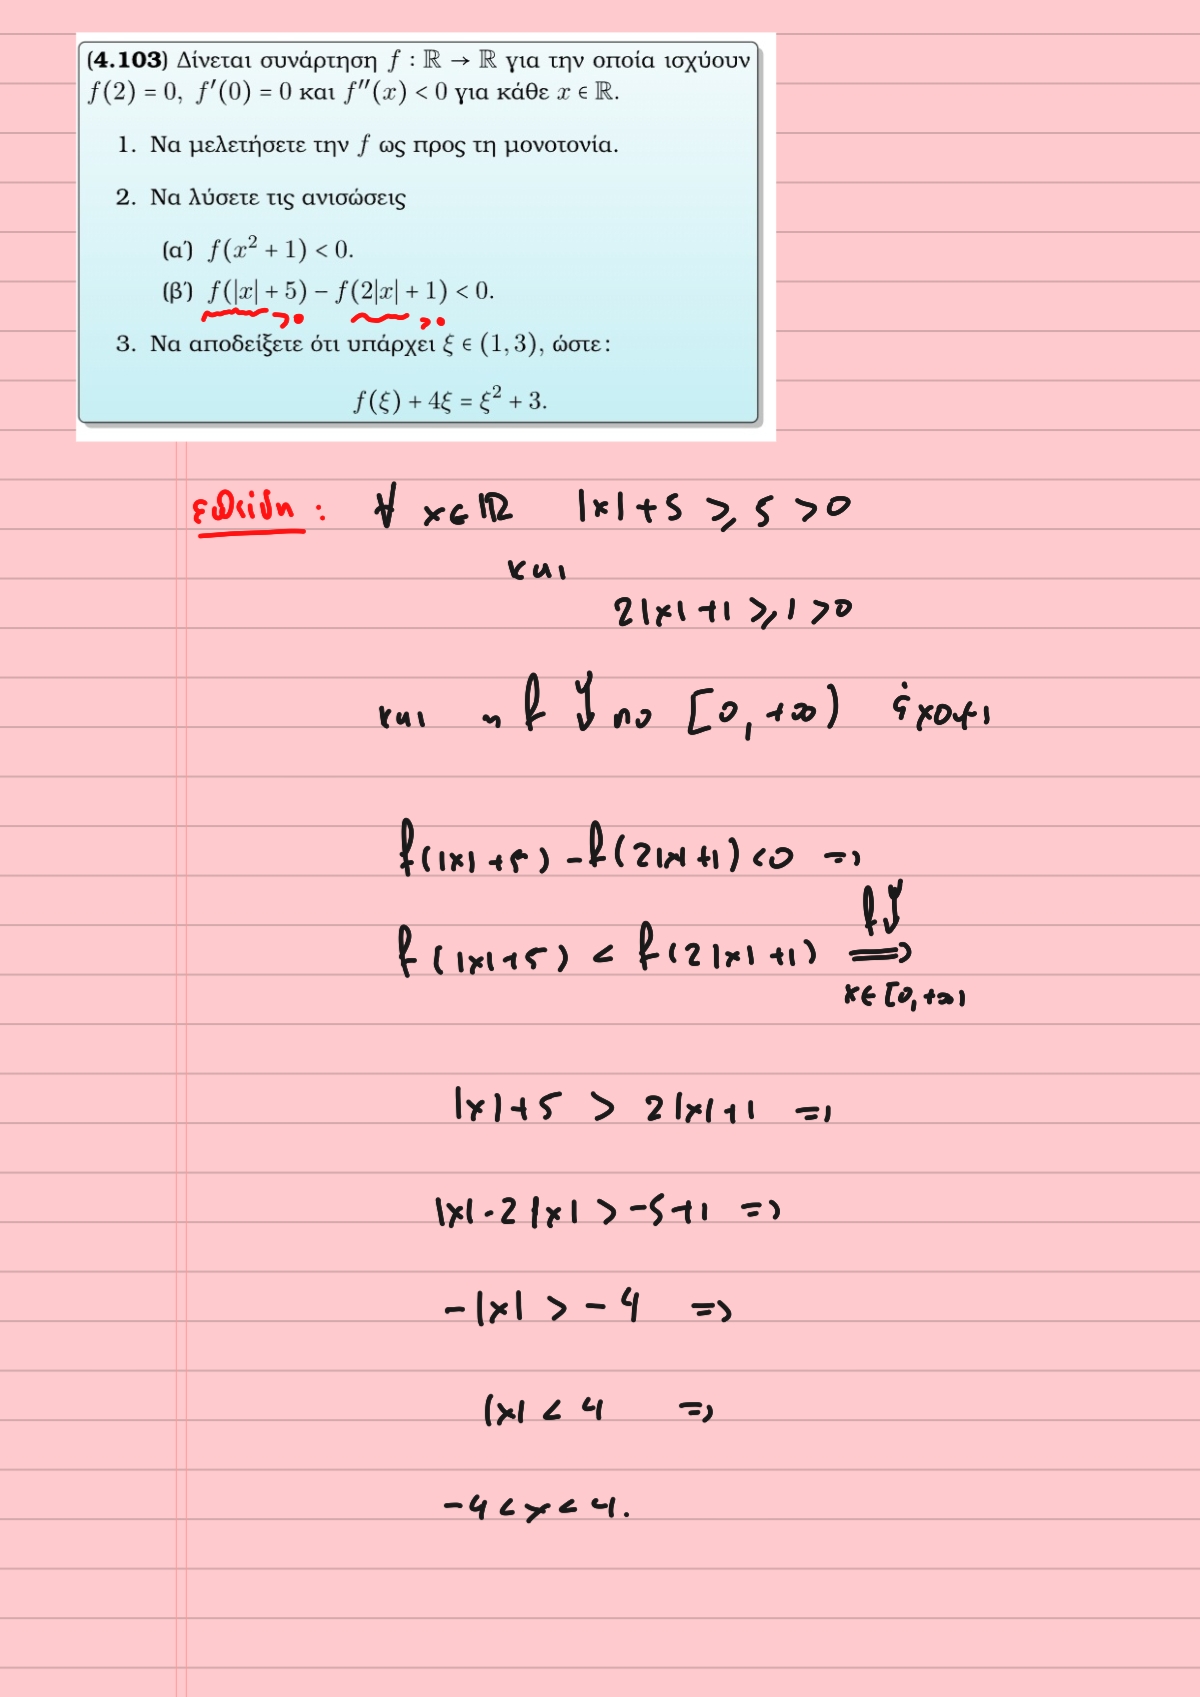 (4.103) Δίνεται συνάρτηση f : ℝ → ℝ για την οποία ισχύουν
f(2) = 0, f′(0) = 0 και f″(x) < 0 για κάθε x ∈ ℝ.
1. Να μελετήσετε την f ως προς τη μονοτονία.
2. Να λύσετε τις ανισώσεις
(α΄) f(x² + 1) < 0.
(β΄) f(|x| + 5) − f(2|x| + 1) < 0.
>0 >0
3. Να αποδείξετε ότι υπάρχει ξ ∈ (1, 3), ώστε:
f(ξ) + 4ξ = ξ² + 3.
επειδη : ∀ x ∈ ℝ |x| + 5 ≥ 5 > 0
και
2|x| + 1 ≥ 1 > 0
και η f ↓ [0, +∞)
f(|x| + 5) − f(2|x| + 1) < 0 =>
f(|x| + 5) < f(2|x| + 1) =>
f↓
x ∈ [0, +∞)
|x| + 5 > 2|x| + 1 =>
|x| - 2|x| > -5 + 1 =>
-|x| > -4 =>
|x| < 4 =>
-4 < x < 4.